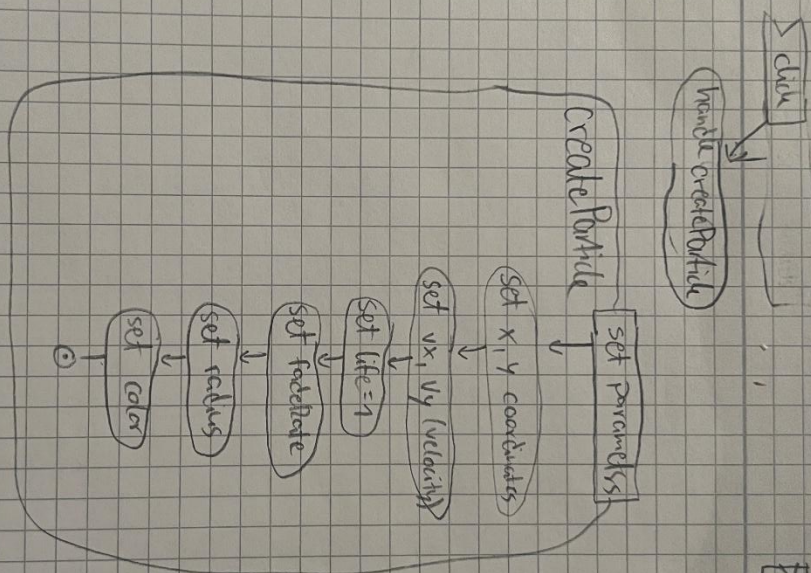 click
handle createParticle
createParticle
set parameters
set x, y coordinates
set vx, vy (velocity)
set life=1
set fadeRate
set radius
set color